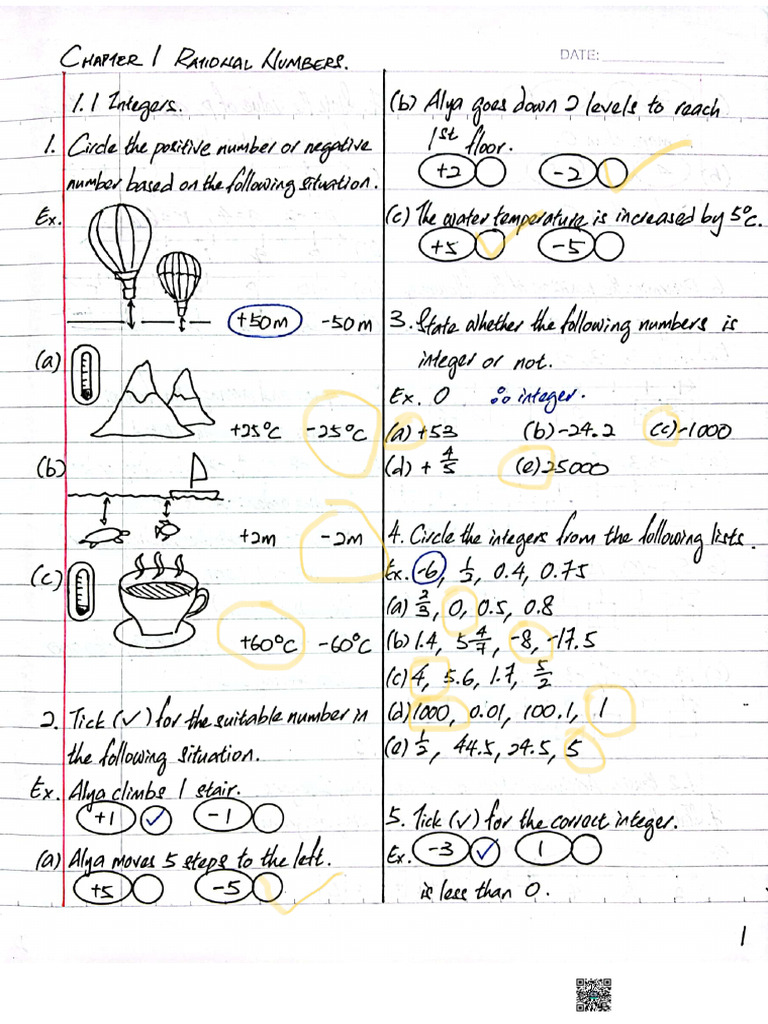 CHAPTER 1 RATIONAL NUMBERS.
DATE:
1.1 Integers.
1. Circle the positive number or negative
number based on the following situation.
Ex.
+50m -50m
(a)
+25°C -25°C
(b)
+2m -2m
(c)
+60°C -60°C
2. Tick (✓) for the suitable number in
the following situation.
Ex. Alya climbs 1 stair.
+1 ✓ -1
(a) Alya moves 5 steps to the left.
+5 -5
(b) Alya goes down 2 levels to reach
1st floor.
+2 -2
(c) The water temperature is increased by 5°C.
+5 -5
3. State whether the following numbers is
integer or not.
Ex. 0 ∴ integer.
(a) +53 (b) -24.2 (c) -1000
(d) + 4/5 (e) 25000
4. Circle the integers from the following lists.
Ex. -6, 1/2, 0.4, 0.75
(a) 2/3, 0, 0.5, 0.8
(b) 1.4, 5 4/7, -8, -17.5
(c) 4, 5.6, 1.7, 5/2
(d) 1000, 0.01, 100.1, 1
(e) 1/2, 44.5, 24.5, 5
5. Tick (✓) for the correct integer.
Ex. -3 ✓ 1
is less than 0.
1